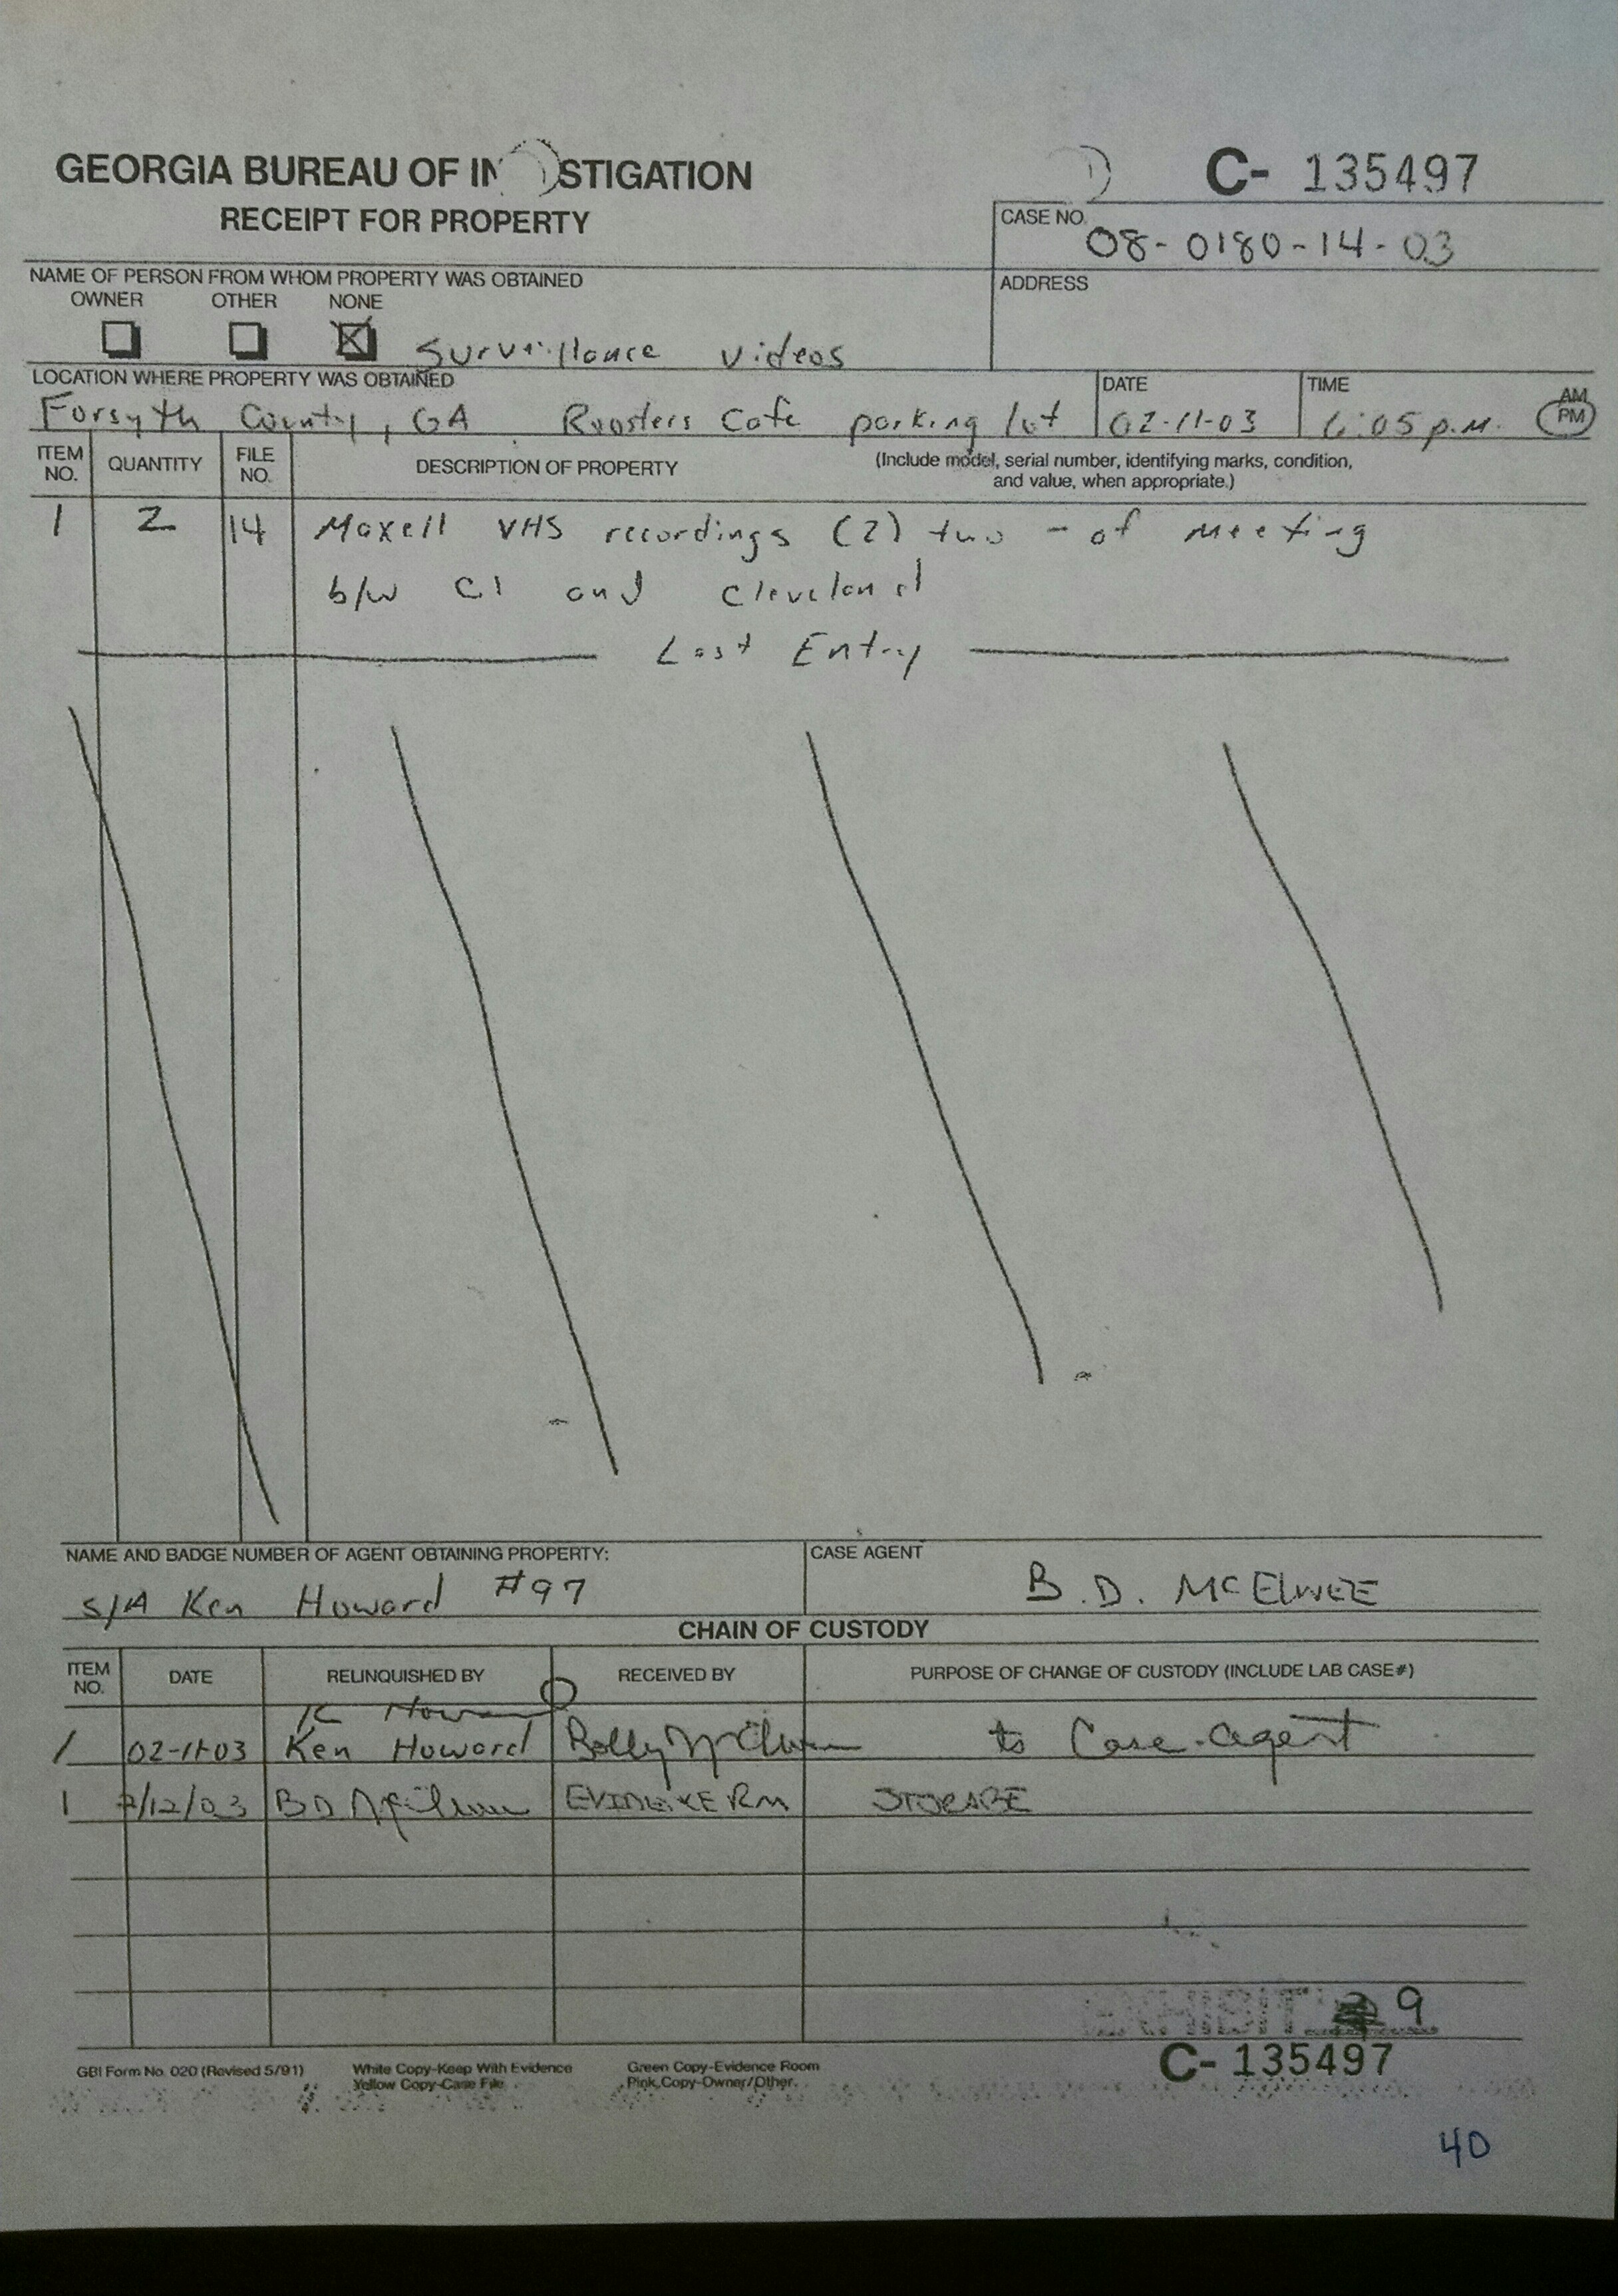 GEORGIA BUREAU OF IN STIGATION
C- 135497
RECEIPT FOR PROPERTY
CASE NO.
08-0180-14-03
NAME OF PERSON FROM WHOM PROPERTY WAS OBTAINED
ADDRESS
OWNER OTHER NONE
Surveillance videos
LOCATION WHERE PROPERTY WAS OBTAINED DATE TIME AM PM
Forsyth County, GA Roosters Cafe parking lot 02-11-03 6:05 p.m.
ITEM NO. QUANTITY FILE NO. DESCRIPTION OF PROPERTY (Include model, serial number, identifying marks, condition,
and value, when appropriate.)
1 2 14 Maxell VHS recordings (2) two - of meeting
b/w CI and Cleveland
Last Entry
NAME AND BADGE NUMBER OF AGENT OBTAINING PROPERTY: CASE AGENT
S/A Ken Howard #97 B.D. McELWEE
CHAIN OF CUSTODY
ITEM NO. DATE RELINQUISHED BY RECEIVED BY PURPOSE OF CHANGE OF CUSTODY (INCLUDE LAB CASE#)
K Howard
1 02-11-03 Ken Howard to Case Agent
1 2/12/03 BD McElwee EVIDENCE RM STORAGE
EXHIBIT 9
GBI Form No. 020 (Revised 5/91) White Copy-Keep With Evidence Green Copy-Evidence Room
Yellow Copy-Case File Pink Copy-Owner/Other
C- 135497
40